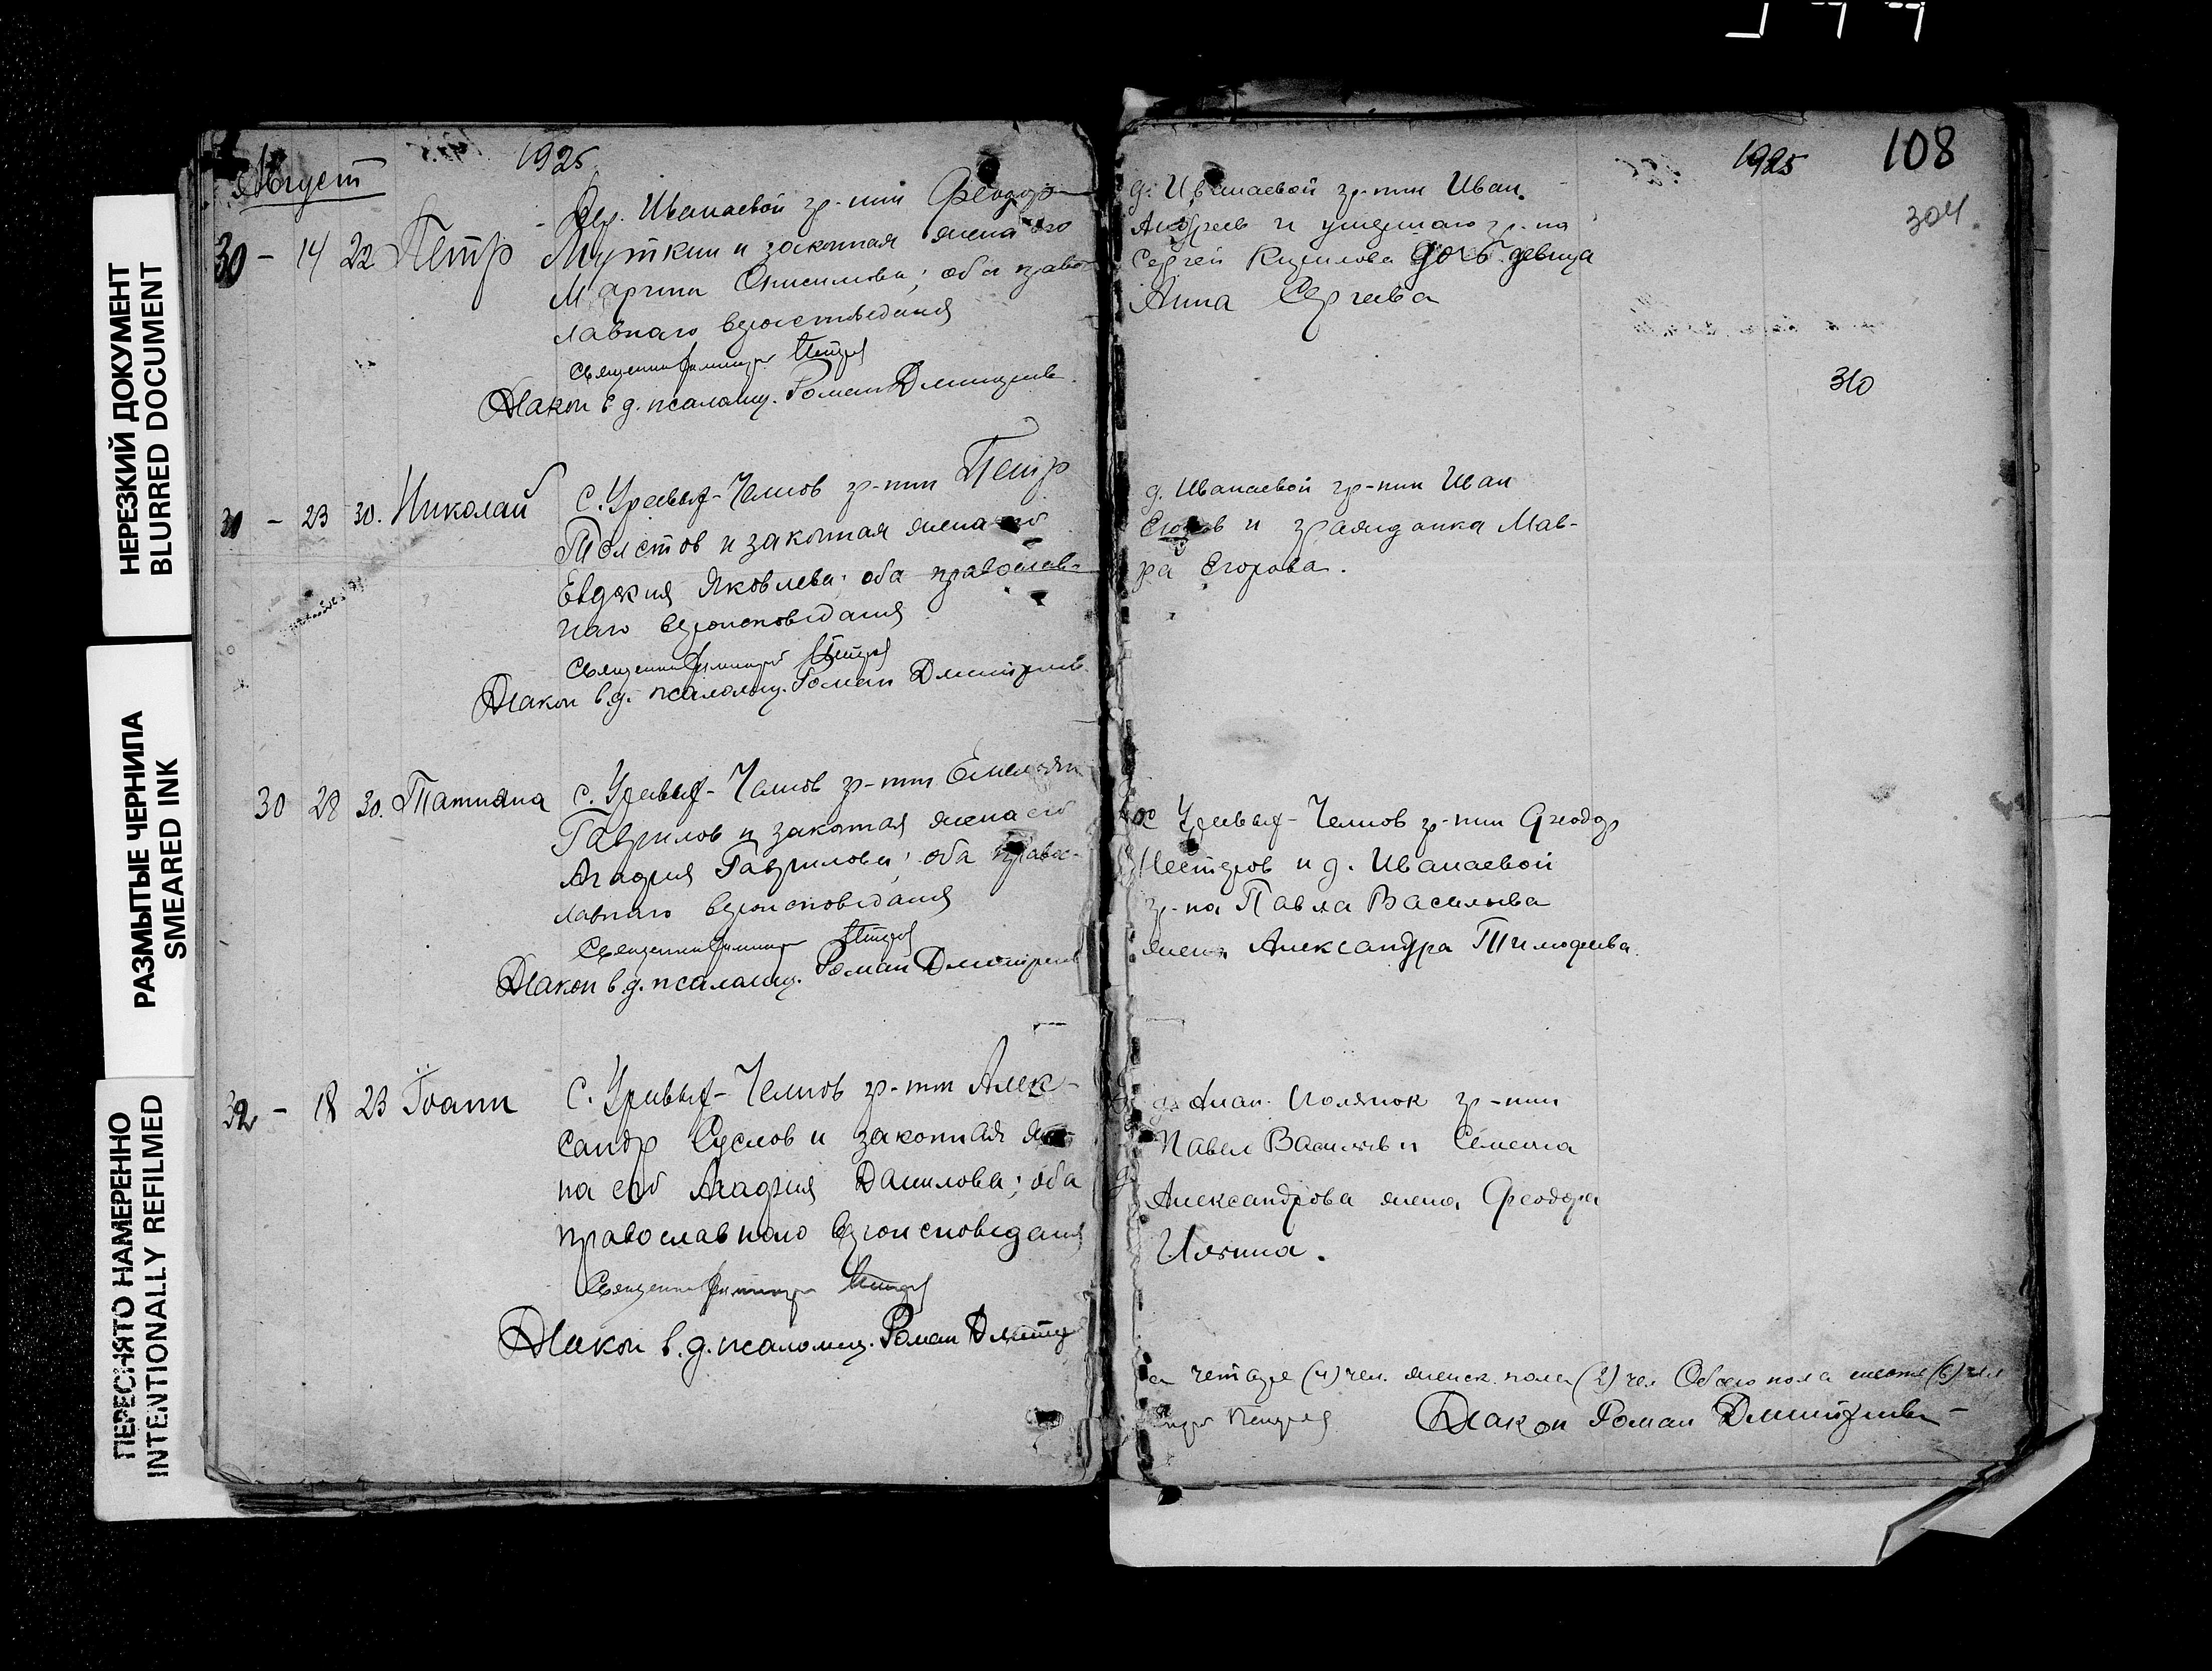 НЕРЕЗКИЙ ДОКУМЕНТ
BLURRED DOCUMENT
РАЗМЫТЫЕ ЧЕРНИЛА
SMEARED INK
ПЕРЕСНЯТО НАМЕРЕННО
INTENTIONALLY REFILMED
Август
1925
30 - 14 22 Петр
Дер. Иванаевой гр-нин Феодор
Муткин и законная жена его
Марина Онисимова; оба правос-
лавнаго вероисповедания
Священник Петров
Диакон в д. псаломщ. Роман Дмитриев
31 - 23 30. Николай
с. Урывы-Челнов гр-нин Петр
Толстов и законная жена его
Евдокия Яковлева; оба православ-
наго вероисповедания
Священник Петров
Диакон в.д. псаломщ. Роман Дмитриев
30 28 30. Татиана
с. Урывы-Челнов гр-нин Емельян
Гаврилов и законная жена его
Агафия Гаврилова; оба правос-
лавнаго вероисповедания
Священник Петров
Диакон в.д. псаломщ. Роман Дмитриев
32 - 18 23 Iоанн
с. Урывы-Челнов гр-нин Алек-
сандр Суслов и законная же-
на его Агафия Данилова; оба
православнаго вероисповедания
Священник Петров
Диакон в.д. псаломщ. Роман Дмитр
1925
108
304
д. Иванаевой гр-нин Иван
Андреев и умершаго гр-на
Сергей Кирилова дочь девица
Анна Сергеева
310
д. Иванаевой гр-нин Иван
Егоров и гражданка Мав-
ра Егорова.
с Урывы-Челнов гр-нин Феодор
Нестеров и д. Иванаевой
гр-на Павла Васильева
жена Александра Тимофеева.
гр-нин
Павел Васильев и
Александрова жена Феодора
Ильина.
а четыре (4) чел. женск. пола (2) чел Обоего пола шесть (6) чел
Петров
Диакон Роман Дмитриев